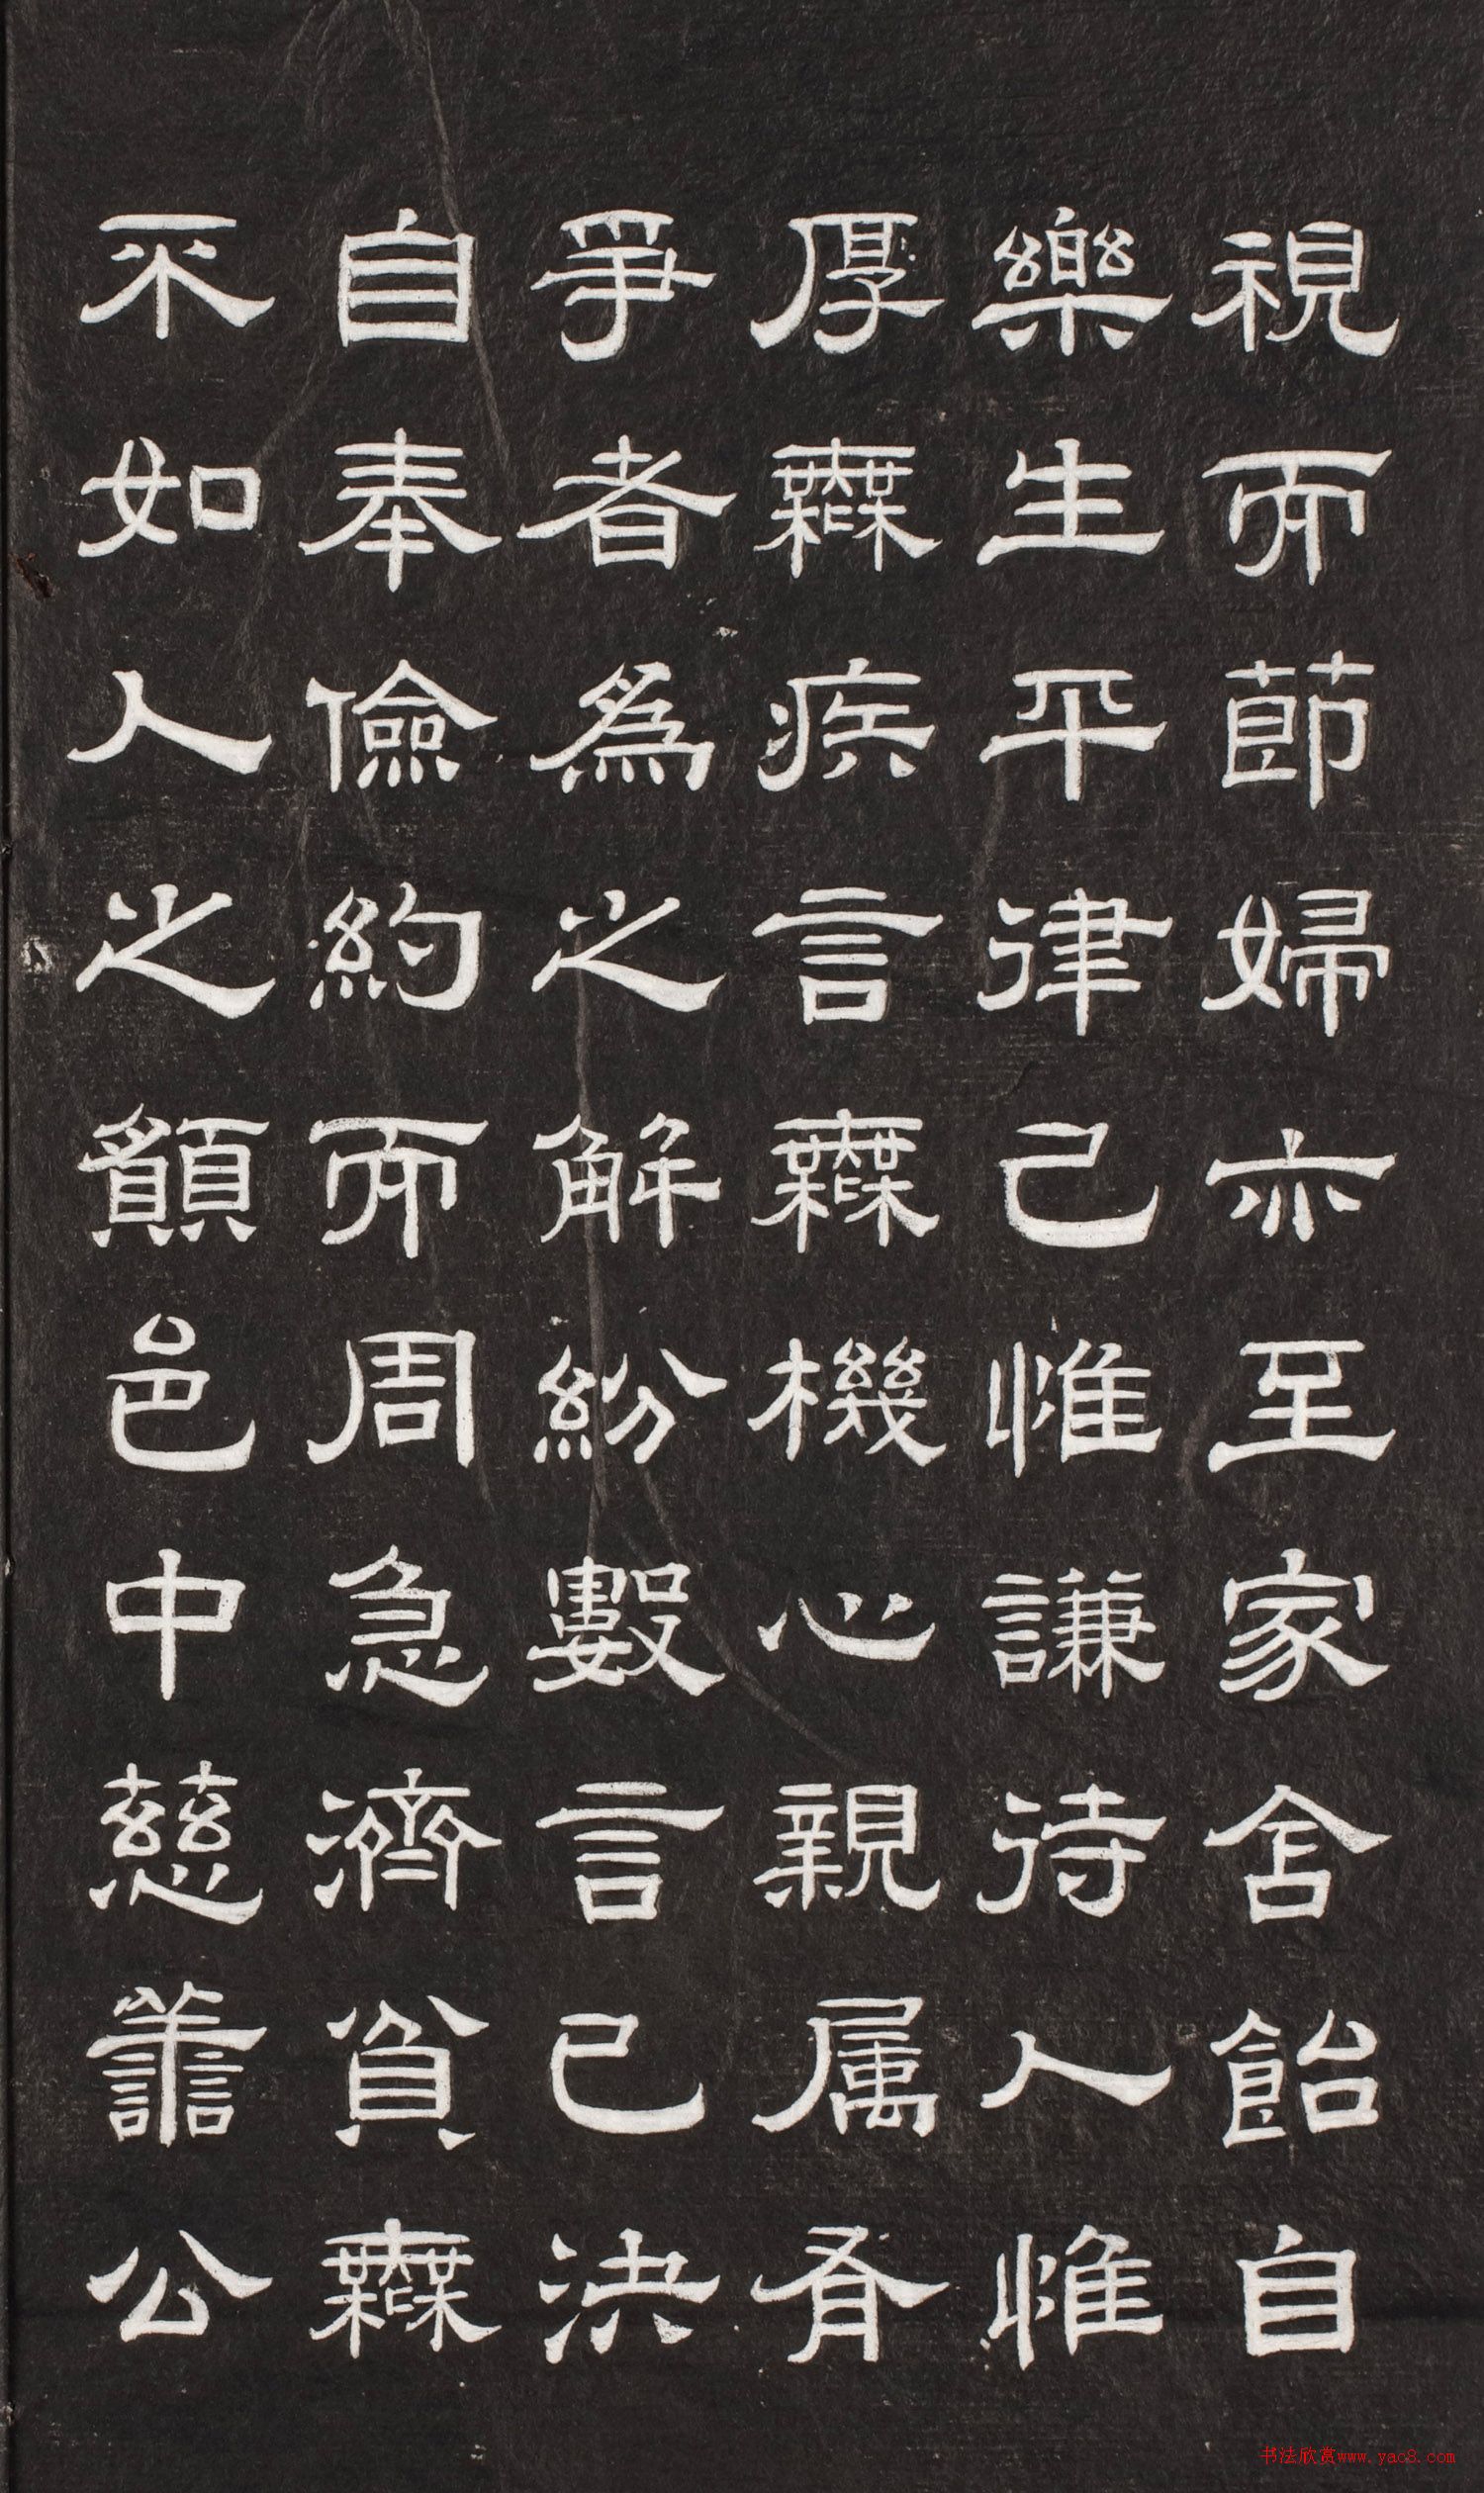 視而節婦亦至家舍飴自
樂生平律己惟謙待人惟
厚無疾言無機心親属有
爭者為之解紛數言已決
自奉儉約而周急濟貧無
不如人之願邑中慈善公
书法欣赏www.yac8.com